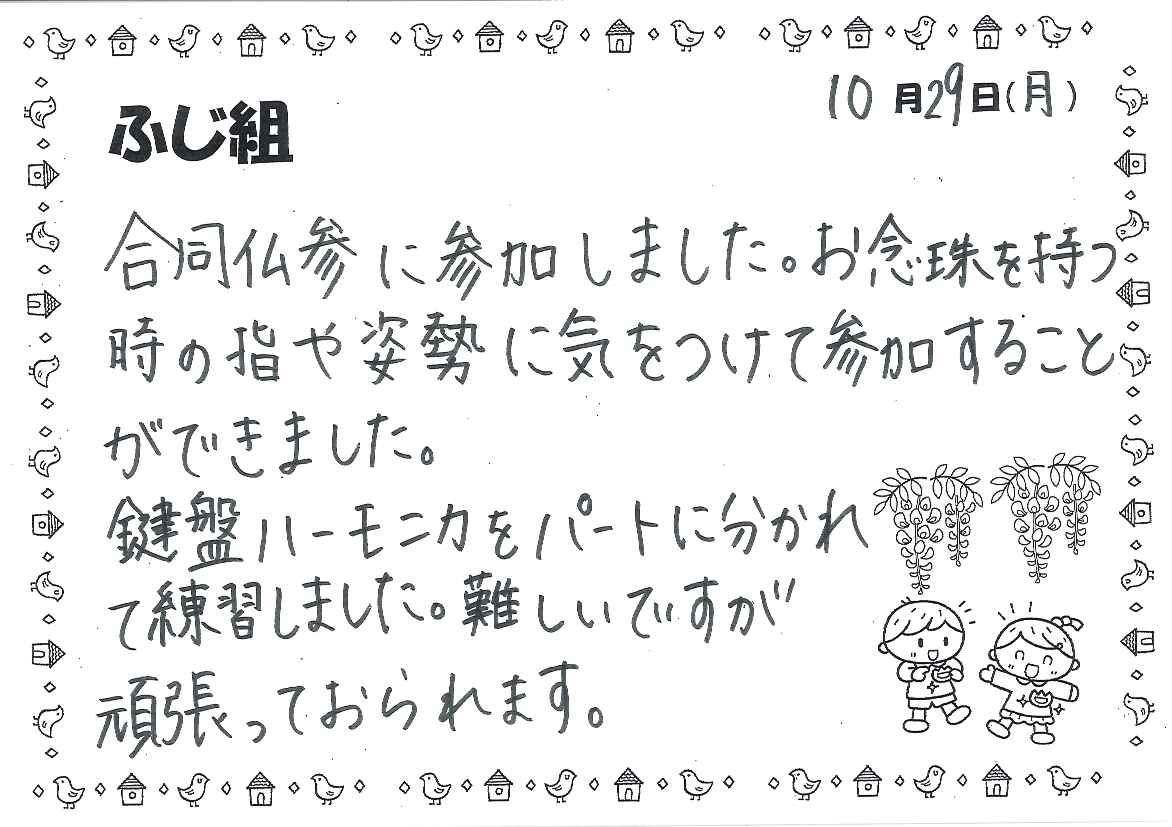 10月29日(月)
ふじ組
合同仏参に参加しました。お念珠を持つ
時の指や姿勢に気をつけて参加すること
ができました。
鍵盤ハーモニカをパートに分かれ
て練習しました。難しいですが
頑張っておられます。